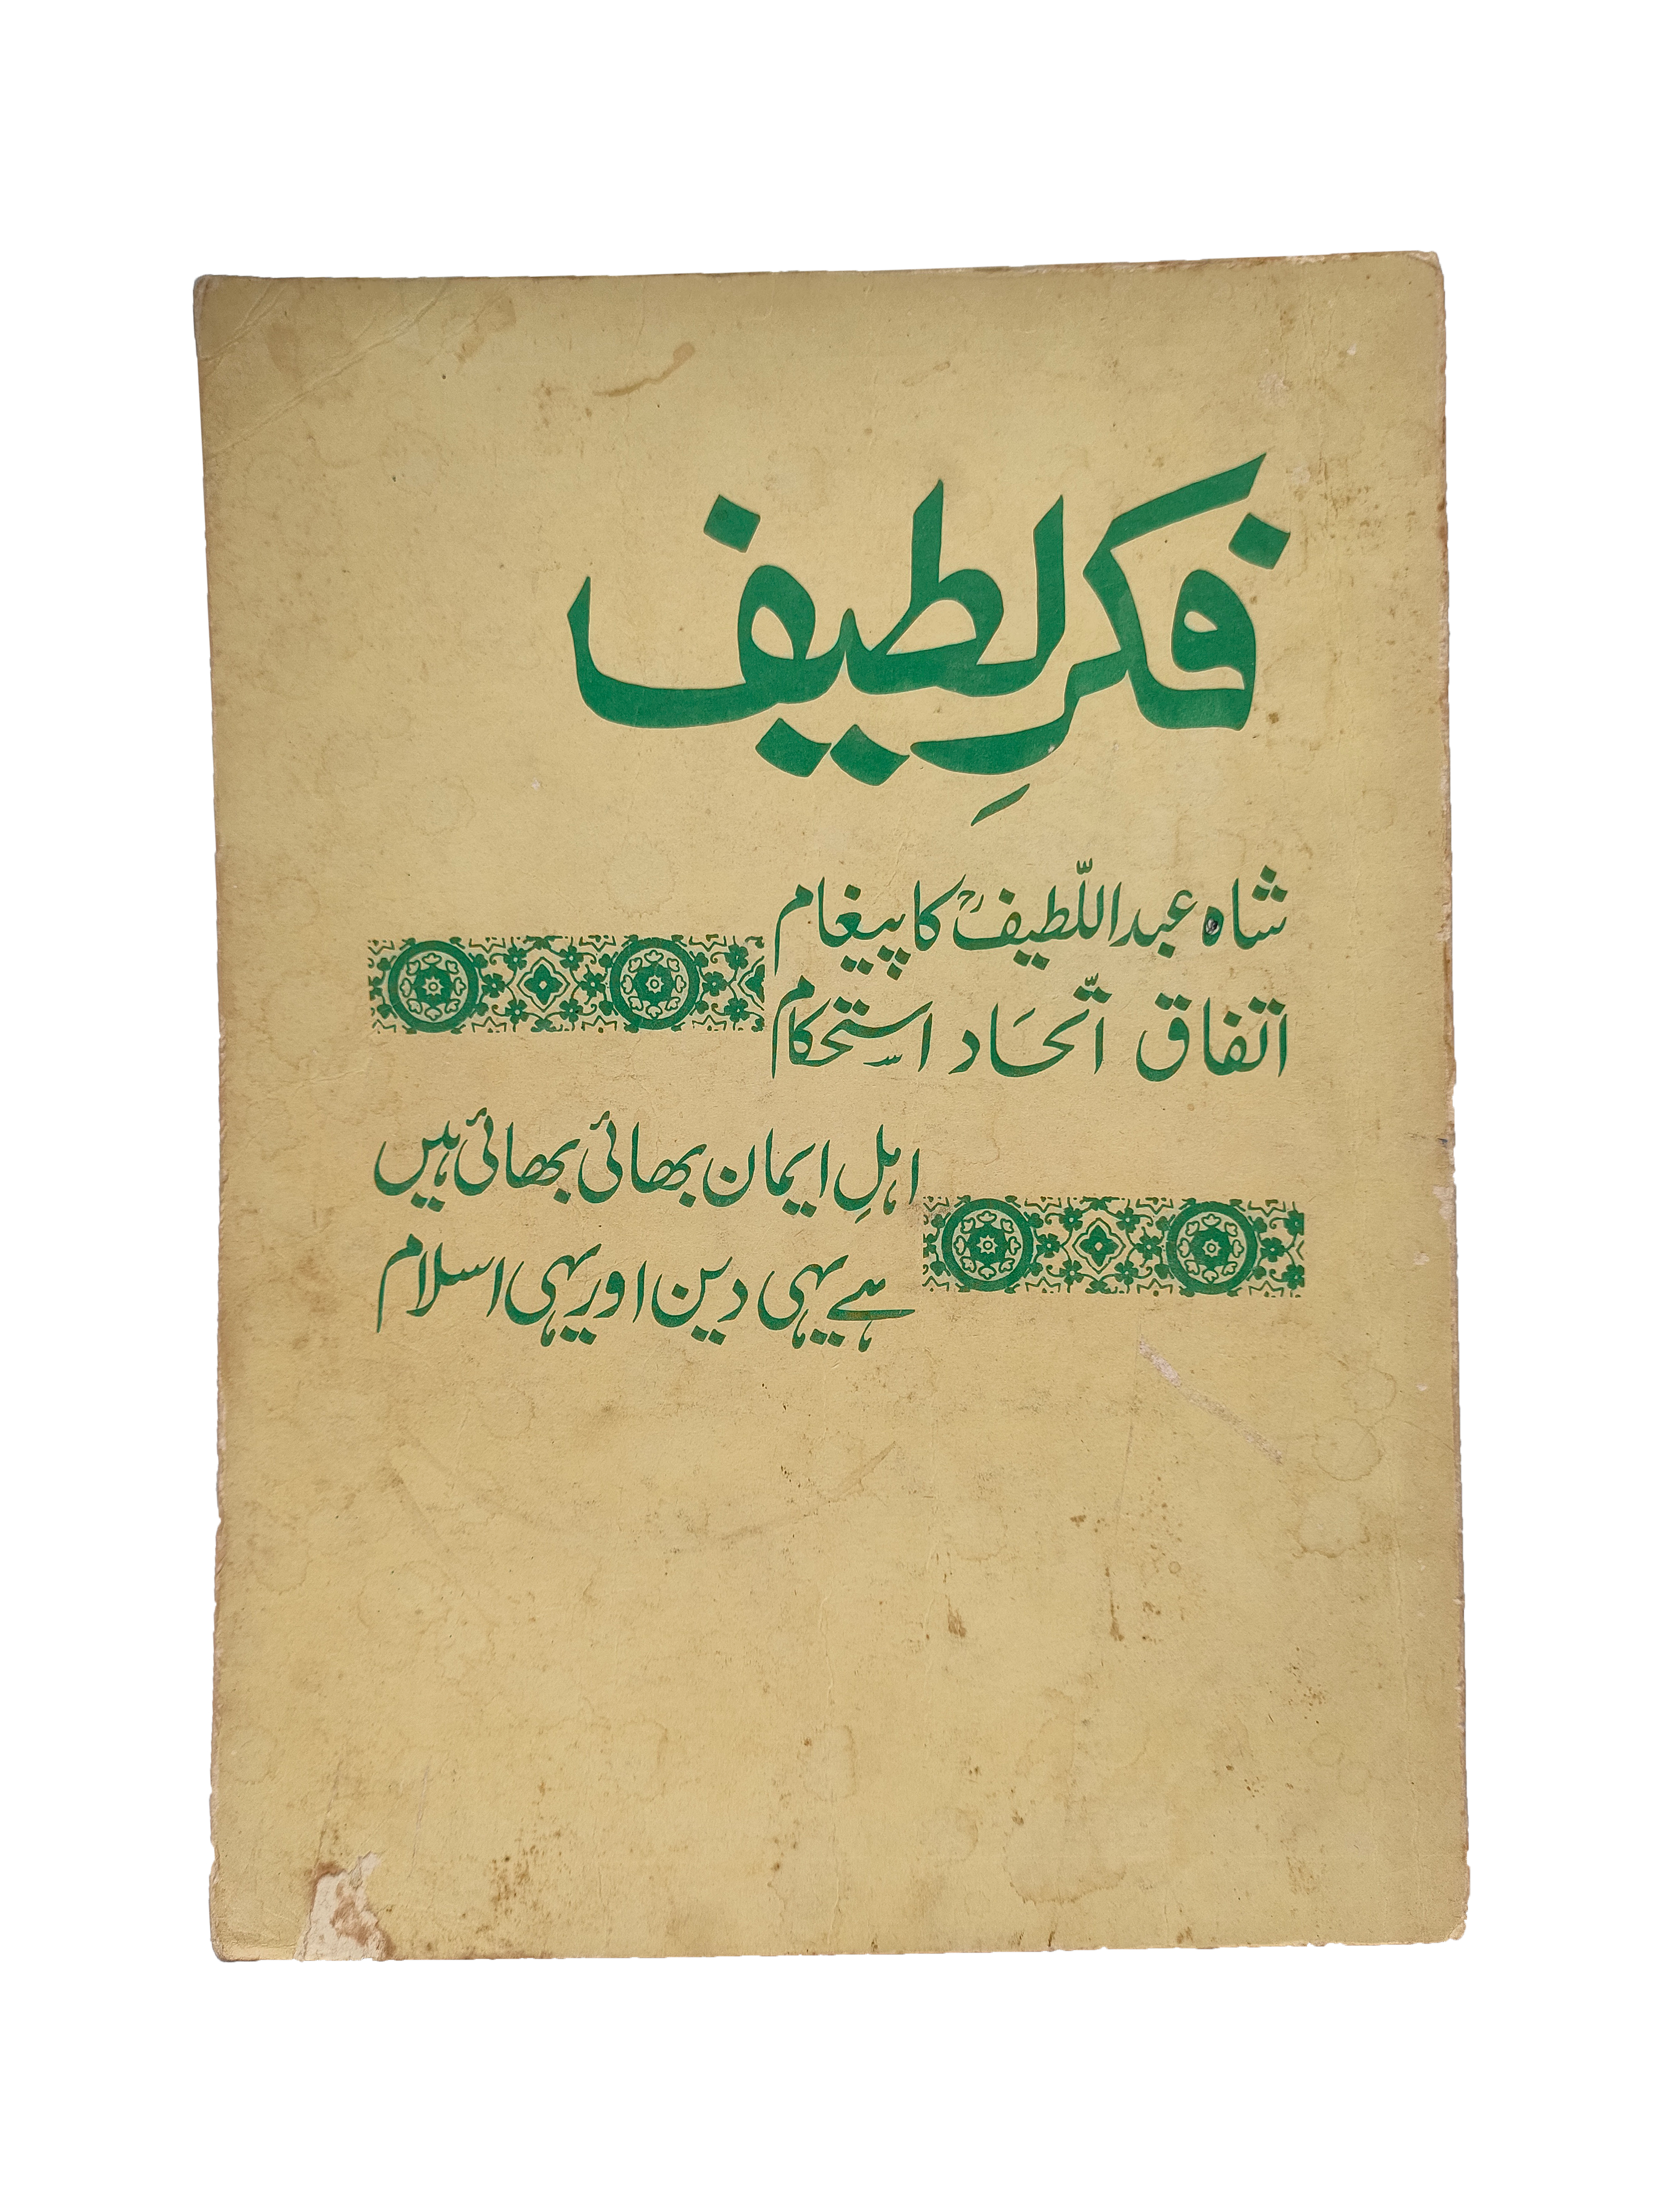 فکرِ لطیف
شاہ عبداللّطیفؒ کا پیغام
اتفاق اتّحَاد استحکام
اہلِ ایمان بھائی بھائی ہیں
ہے یہی دین اور یہی اسلام